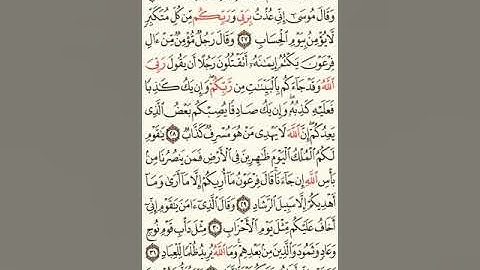 وَقَالَ مُوسَىٰٓ إِنِّي عُذْتُ بِرَبِّي وَرَبِّكُم مِّن كُلِّ مُتَكَبِّرٍ
لَّا يُؤْمِنُ بِيَوْمِ ٱلْحِسَابِ ٢٧ وَقَالَ رَجُلٌ مُّؤْمِنٌ مِّنْ ءَالِ
فِرْعَوْنَ يَكْتُمُ إِيمَٰنَهُۥٓ أَتَقْتُلُونَ رَجُلًا أَن يَقُولَ رَبِّيَ
ٱللَّهُ وَقَدْ جَآءَكُم بِٱلْبَيِّنَٰتِ مِن رَّبِّكُمْ وَإِن يَكُ كَٰذِبًا
فَعَلَيْهِ كَذِبُهُۥ وَإِن يَكُ صَادِقًا يُصِبْكُم بَعْضُ ٱلَّذِي
يَعِدُكُمْ إِنَّ ٱللَّهَ لَا يَهْدِي مَنْ هُوَ مُسْرِفٌ كَذَّابٌ ٢٨ يَٰقَوْمِ
لَكُمُ ٱلْمُلْكُ ٱلْيَوْمَ ظَٰهِرِينَ فِي ٱلْأَرْضِ فَمَن يَنصُرُنَا مِنۢ
بَأْسِ ٱللَّهِ إِن جَآءَنَا قَالَ فِرْعَوْنُ مَآ أُرِيكُمْ إِلَّا مَآ أَرَىٰ وَمَآ
أَهْدِيكُمْ إِلَّا سَبِيلَ ٱلرَّشَادِ ٢٩ وَقَالَ ٱلَّذِيٓ ءَامَنَ يَٰقَوْمِ إِنِّيٓ
أَخَافُ عَلَيْكُم مِّثْلَ يَوْمِ ٱلْأَحْزَابِ ٣٠ مِثْلَ دَأْبِ قَوْمِ نُوحٍ
وَعَادٍ وَثَمُودَ وَٱلَّذِينَ مِنۢ بَعْدِهِمْ وَمَا ٱللَّهُ يُرِيدُ ظُلْمًا لِّلْعِبَادِ ٣١